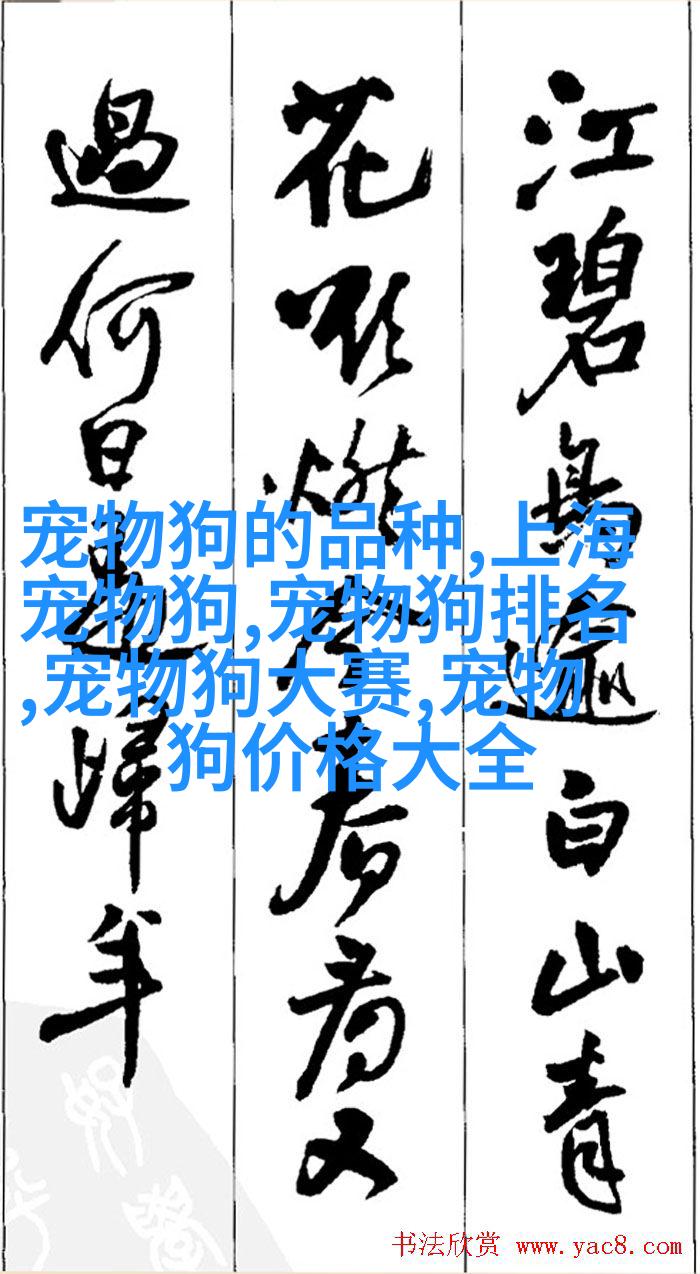 江碧鳥逾白山青
花欲燃今春看又
過何日是歸年
宠物狗的品种,上海
宠物狗,宠物狗排名
,宠物狗大赛,宠物
狗价格大全
书法欣赏 www.yac8.com